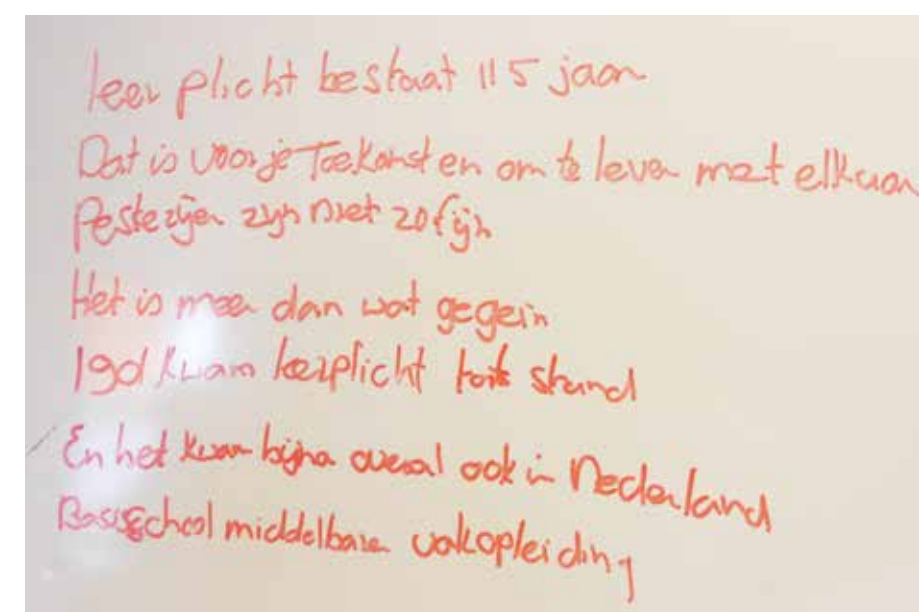 leer plicht bestaat 115 jaar
Dat is voor je Toekomst en om te leven met elkaar
Pesterijen zijn niet zo fijn
Het is meer dan wat gegein
kwam leerplicht stand
En het kwam bijna overal ook in Nederland
Basisschool middelbare vakopleiding